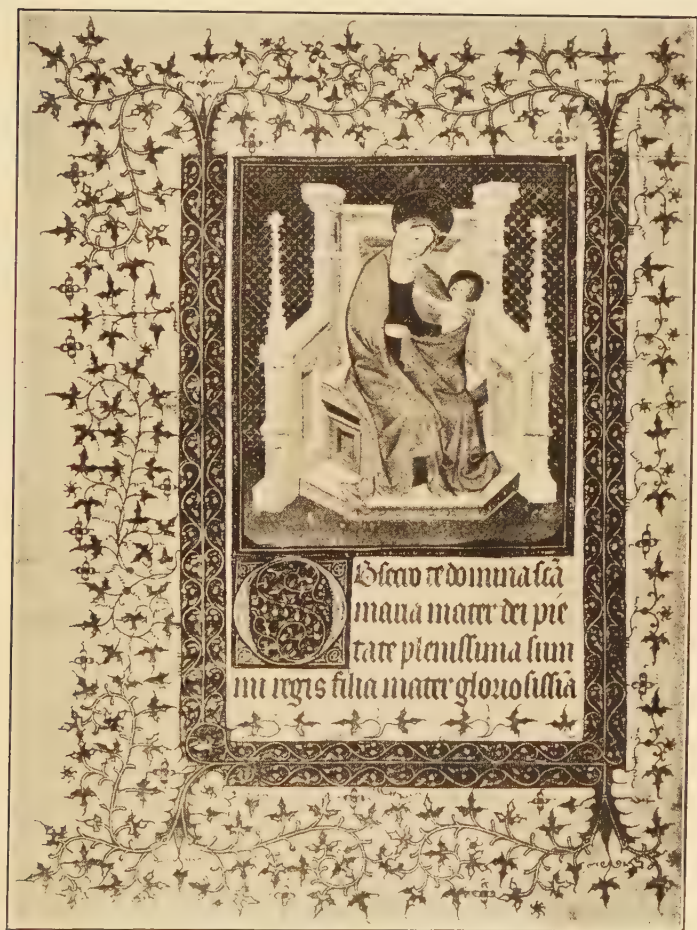 Obsecro te domina sc̄a
maria mater dei pie
tate plenissima sum
mi regis filia mater gloriosissīa